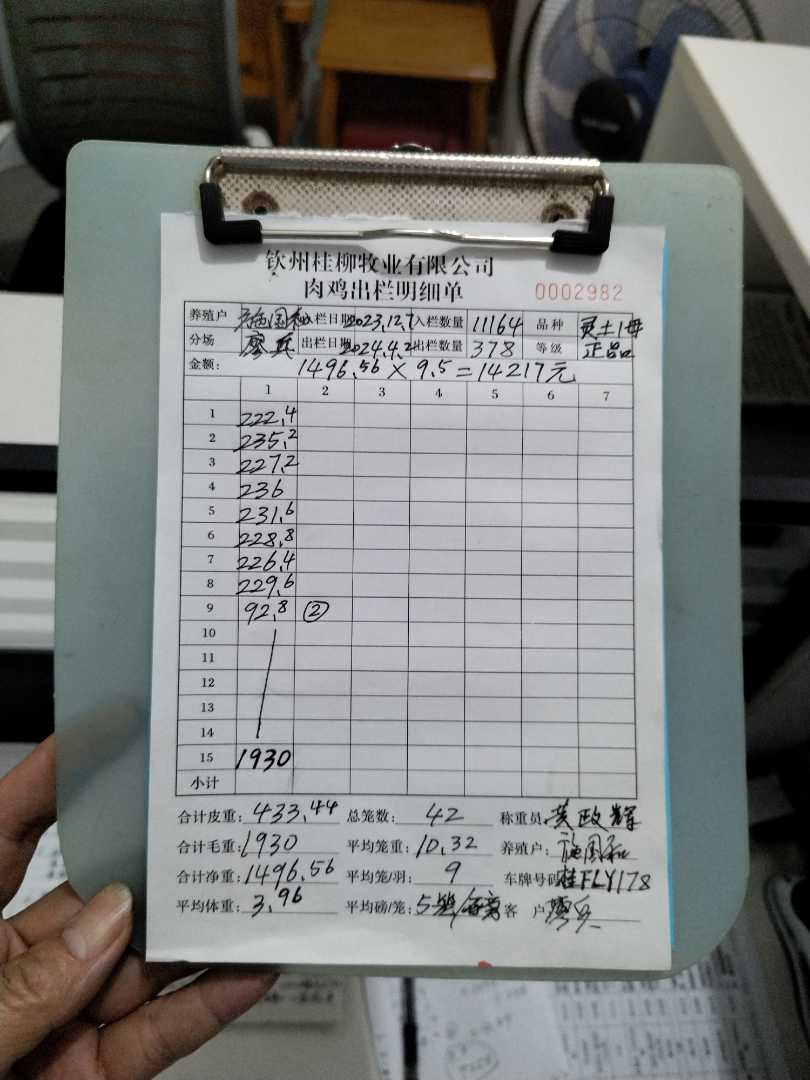 钦州桂柳牧业有限公司
肉鸡出栏明细单 0002982
养殖户 施国和 入栏日期 2023.12.1 入栏数量 11164 品种 灵土1母
分场 廖兵 出栏日期 2024.4.2 出栏数量 378 等级 正品
金额: 1496.56 × 9.5 = 14217元
1 2 3 4 5 6 7
1 222.4
2 235.2
3 227.2
4 236
5 231.6
6 228.8
7 226.4
8 229.6
9 92.8 ②
10
11
12
13
14
15 1930
小计
合计皮重: 433.44 总笼数: 42 称重员: 黄政辉
合计毛重: 1930 平均笼重: 10.32 养殖户: 施国和
合计净重: 1496.56 平均笼/羽: 9 车牌号码 桂FLY178
平均体重: 3.96 平均磅/笼: 5 客 户 廖兵